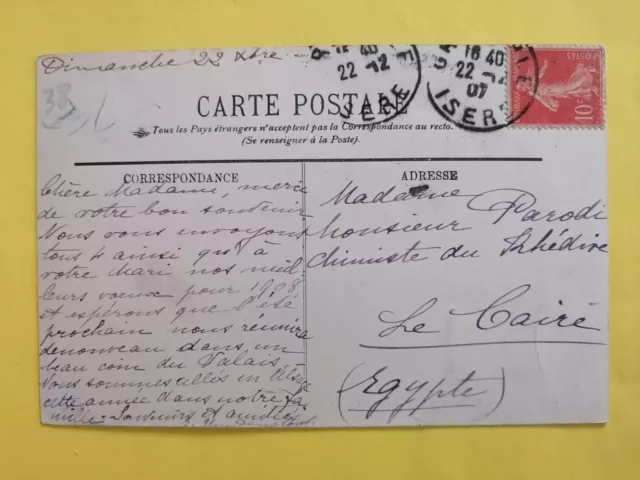 Dimanche 22 Xbre
16 40
22 -12
ISERE
16 40
22 -12
07
ISERE
POSTES
10c
38
CARTE POSTALE
Tous les Pays étrangers n'acceptent pas la Correspondance au recto.
(Se renseigner à la Poste).
CORRESPONDANCE
Chère Madame, merci
de votre bon souvenir
Nous vous envoyons
tous 4 ainsi qu'à
votre mari nos meil
leurs voeux pour 1908
et espérons que l'été
prochain nous réunira
denouveau dans un
beau coin du Valais.
Nous sommes allés en
cette année dans notre fa
mille. Souvenirs et amitiés
ADRESSE
Madame
Monsieur Parodi
chimiste du Khédive
Le Caire
(Egypte)